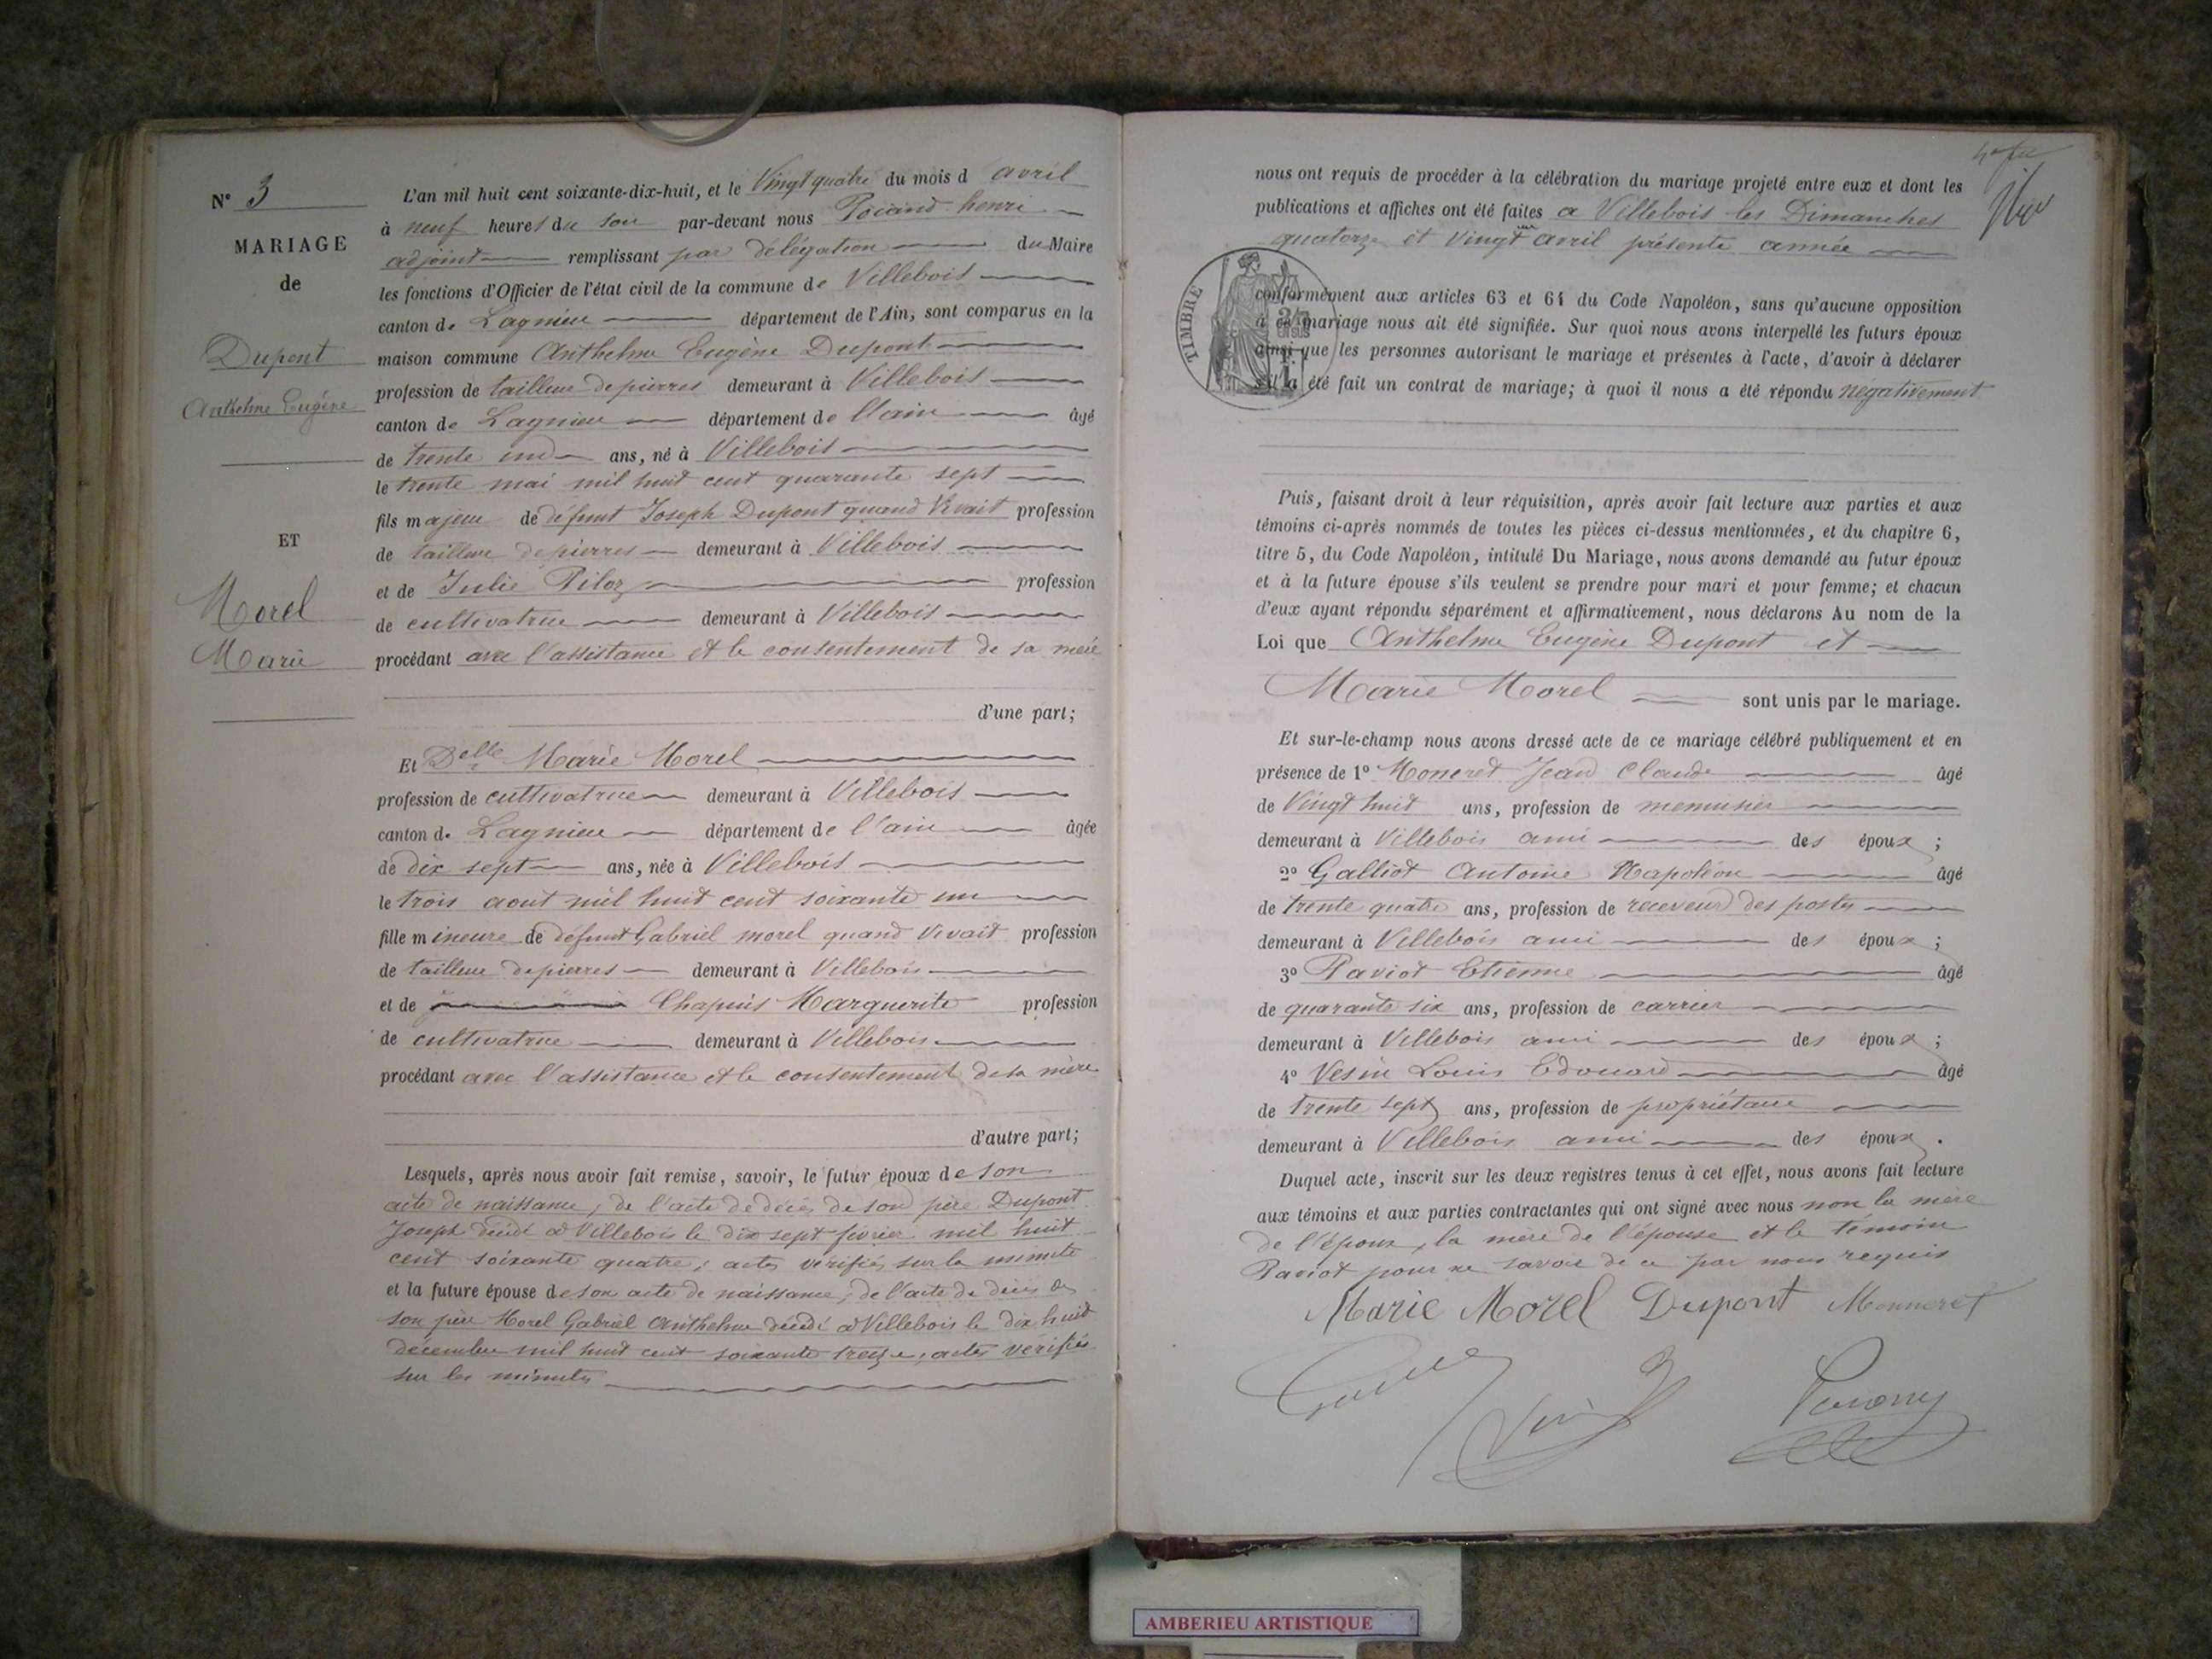 N° 3
MARIAGE
de
Dupont
Anthelme Eugène
ET
Morel
Marie
L'an mil huit cent soixante-dix-huit, et le Vingt quatre du mois d avril
à neuf heures du soir par-devant nous henri
adjoint remplissant par délégation du Maire
les fonctions d'Officier de l'état civil de la commune de Villebois
canton de Lagnieu département de l'Ain, sont comparus en la
maison commune Anthelme Eugène Dupont
profession de tailleur de pierres demeurant à Villebois
canton de Lagnieu département de l'ain âgé
de trente un ans, né à Villebois
le trente mai mil huit cent quarante sept
fils majeur de défunt Joseph Dupont quand Vivait profession
de tailleur de pierres demeurant à Villebois
et de Julie Piloz profession
de cultivatrice demeurant à Villebois
procédant avec l'assistance et le consentement de sa mère
d'une part;
Et Delle Marie Morel
profession de cultivatrice demeurant à Villebois
canton de Lagnieu département de l'ain âgée
de dix sept ans, née à Villebois
le trois aout mil huit cent soixante un
fille mineure de défunt Gabriel morel quand Vivait profession
de tailleur de pierres demeurant à Villebois
et de Chapuis Marguerite profession
de cultivatrice demeurant à Villebois
procédant avec l'assistance et le consentement de sa mère
d'autre part;
Lesquels, après nous avoir fait remise, savoir, le futur époux de son
acte de naissance, de l'acte de décès de son père Dupont
Joseph décédé à Villebois le dix sept février mil huit
cent soixante quatre; actes vérifiés sur la minute
et la future épouse de son acte de naissance, de l'acte de décès de
son père Morel Gabriel Anthelme décédé à Villebois le dix huit
décembre mil huit cent soixante treize, actes vérifiés
sur les minutes
nous ont requis de procéder à la célébration du mariage projeté entre eux et dont les
publications et affiches ont été faites a Villebois les Dimanches
quatorze et Vingt un avril présente année
TIMBRE
conformément aux articles 63 et 64 du Code Napoléon, sans qu'aucune opposition
à ce mariage nous ait été signifiée. Sur quoi nous avons interpellé les futurs époux
ainsi que les personnes autorisant le mariage et présentes à l'acte, d'avoir à déclarer
s'il a été fait un contrat de mariage; à quoi il nous a été répondu négativement
Puis, faisant droit à leur réquisition, après avoir fait lecture aux parties et aux
témoins ci-après nommés de toutes les pièces ci-dessus mentionnées, et du chapitre 6,
titre 5, du Code Napoléon, intitulé Du Mariage, nous avons demandé au futur époux
et à la future épouse s'ils veulent se prendre pour mari et pour femme; et chacun
d'eux ayant répondu séparément et affirmativement, nous déclarons Au nom de la
Loi que Anthelme Eugène Dupont et
Marie Morel sont unis par le mariage.
Et sur-le-champ nous avons dressé acte de ce mariage célébré publiquement et en
présence de 1° Moneret Jean Claude âgé
de Vingt huit ans, profession de menuisier
demeurant à Villebois ami des époux;
2° Galliot Antoine Napoléon âgé
de trente quatre ans, profession de receveur des postes
demeurant à Villebois ami des époux;
3° Paviot Etienne âgé
de quarante six ans, profession de carrier
demeurant à Villebois ami des époux;
4° Vesin Louis Edouard âgé
de trente sept ans, profession de propriétaire
demeurant à Villebois ami des époux.
Duquel acte, inscrit sur les deux registres tenus à cet effet, nous avons fait lecture
aux témoins et aux parties contractantes qui ont signé avec nous non la mère
de l'époux, la mère de l'épouse et le témoin
Paviot pour ne savoir de ce par nous requis
Marie Morel Dupont Monneret
AMBERIEU ARTISTIQUE